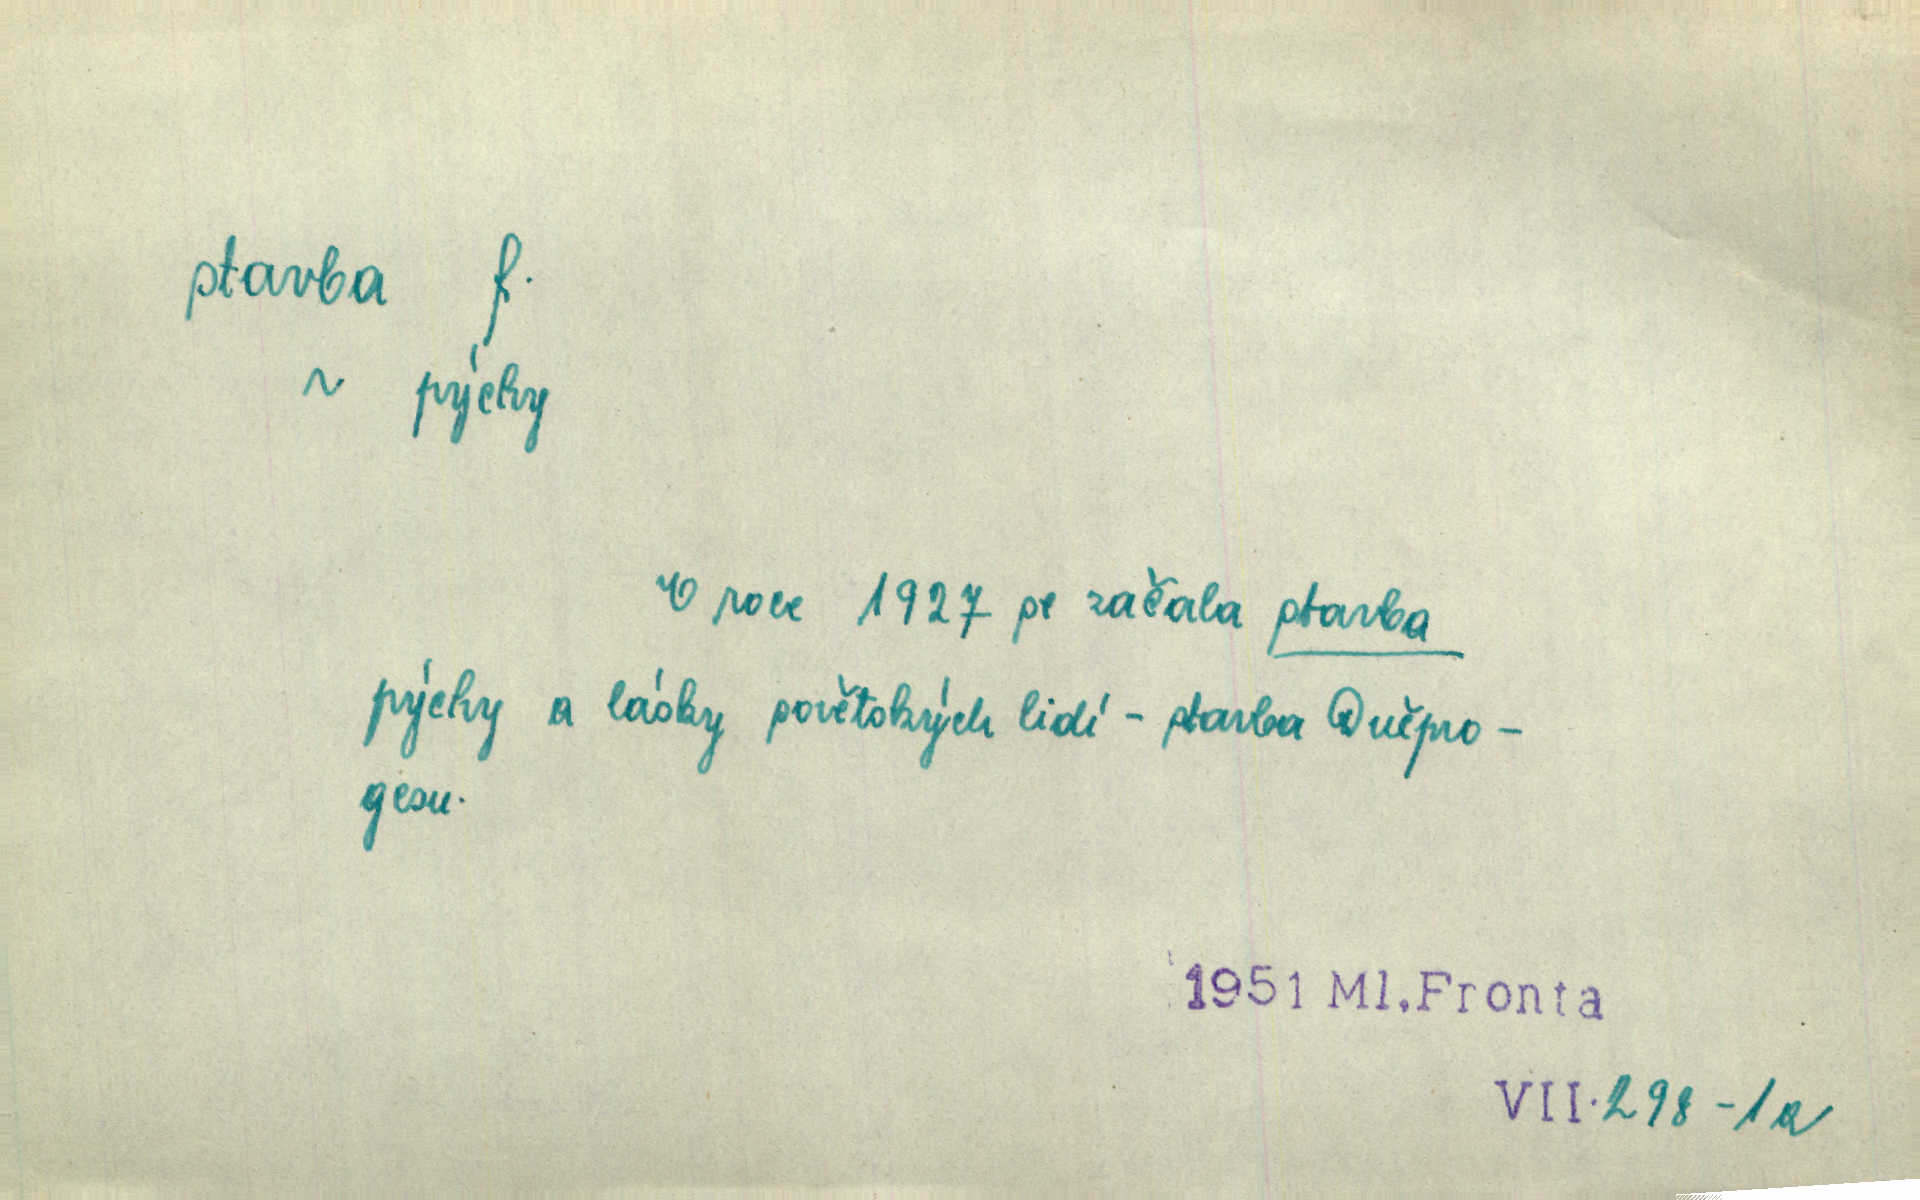 stavba f.
~ pýchy
V roce 1927 se začala stavba
pýchy a lásky sovětských lidí - stavba Dněpro-
gesu.
1951 Ml.Fronta
VII. 298 - 1a